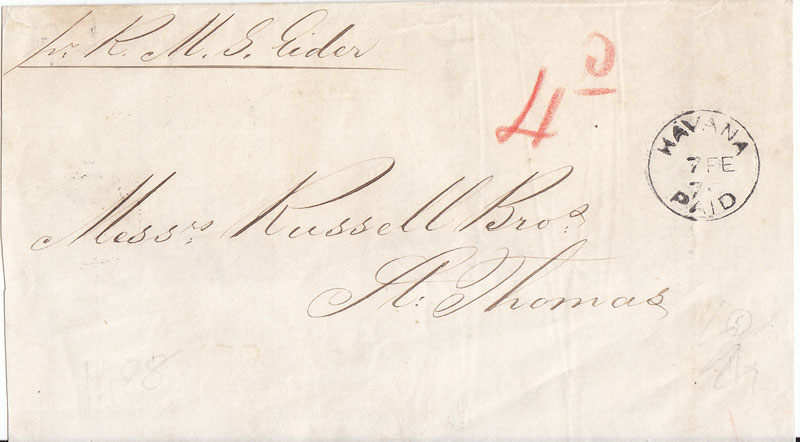 pr R. M. S. Eider
4 D
HAVANA
7 FE
7
PAID
Messrs. Russell Bros.
St. Thomas